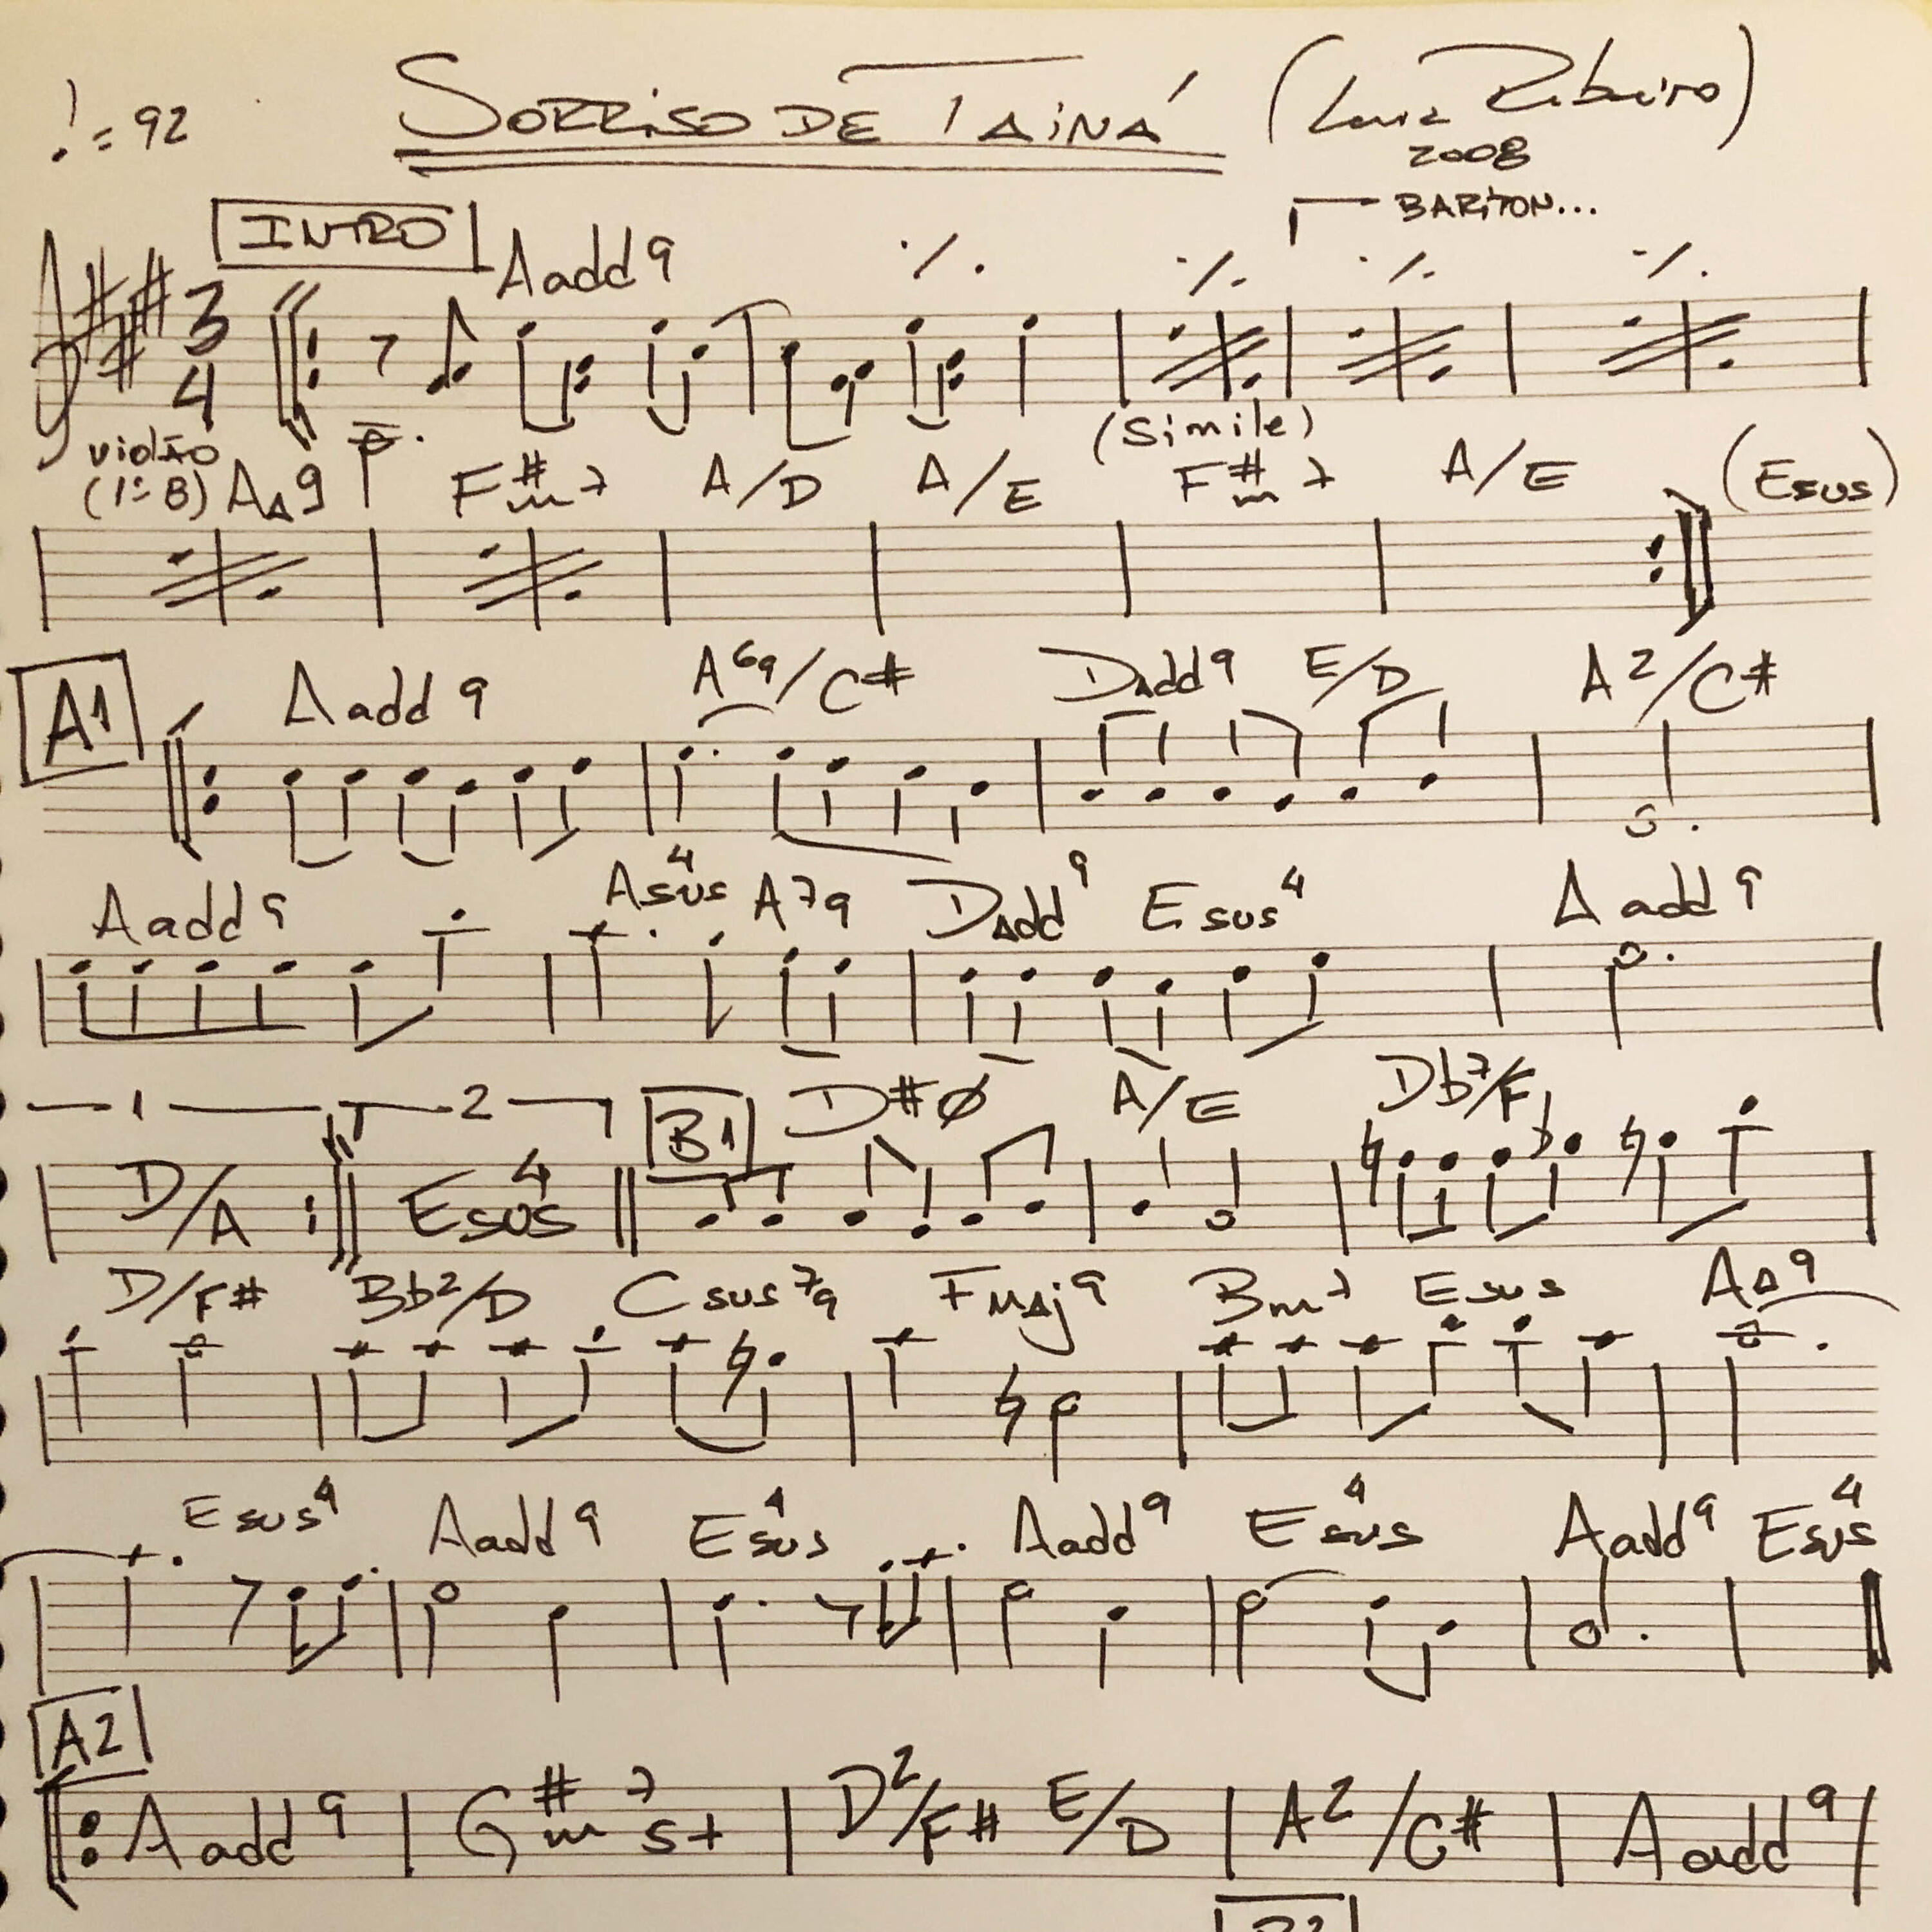 ♩. = 92 SORRISO DE TAINÁ (Luiz Ribeiro)
2008
BARiTON...
INTRO Aadd9 ٪ ٪ ٪ ٪
3
4
(Simile)
violão
(1ª B) A∆9 F#m7 A/D A/E F#m7 A/E (Esus)
A1 Aadd9 A69/C# Dadd9 E/D A2/C#
Aadd9 Asus4 A79 Dadd9 Esus4 Aadd9
1 2 B1 D#ø A/E Db7/F
D/A Esus4
D/F# Bb2/D Csus79 FMAj9 Bm7 Esus A∆9
Esus4 Aadd9 Esus4 Aadd9 Esus4 Aadd9 Esus4
A2
Aadd9 G#m75+ D2/F# E/D A2/C# Aadd9